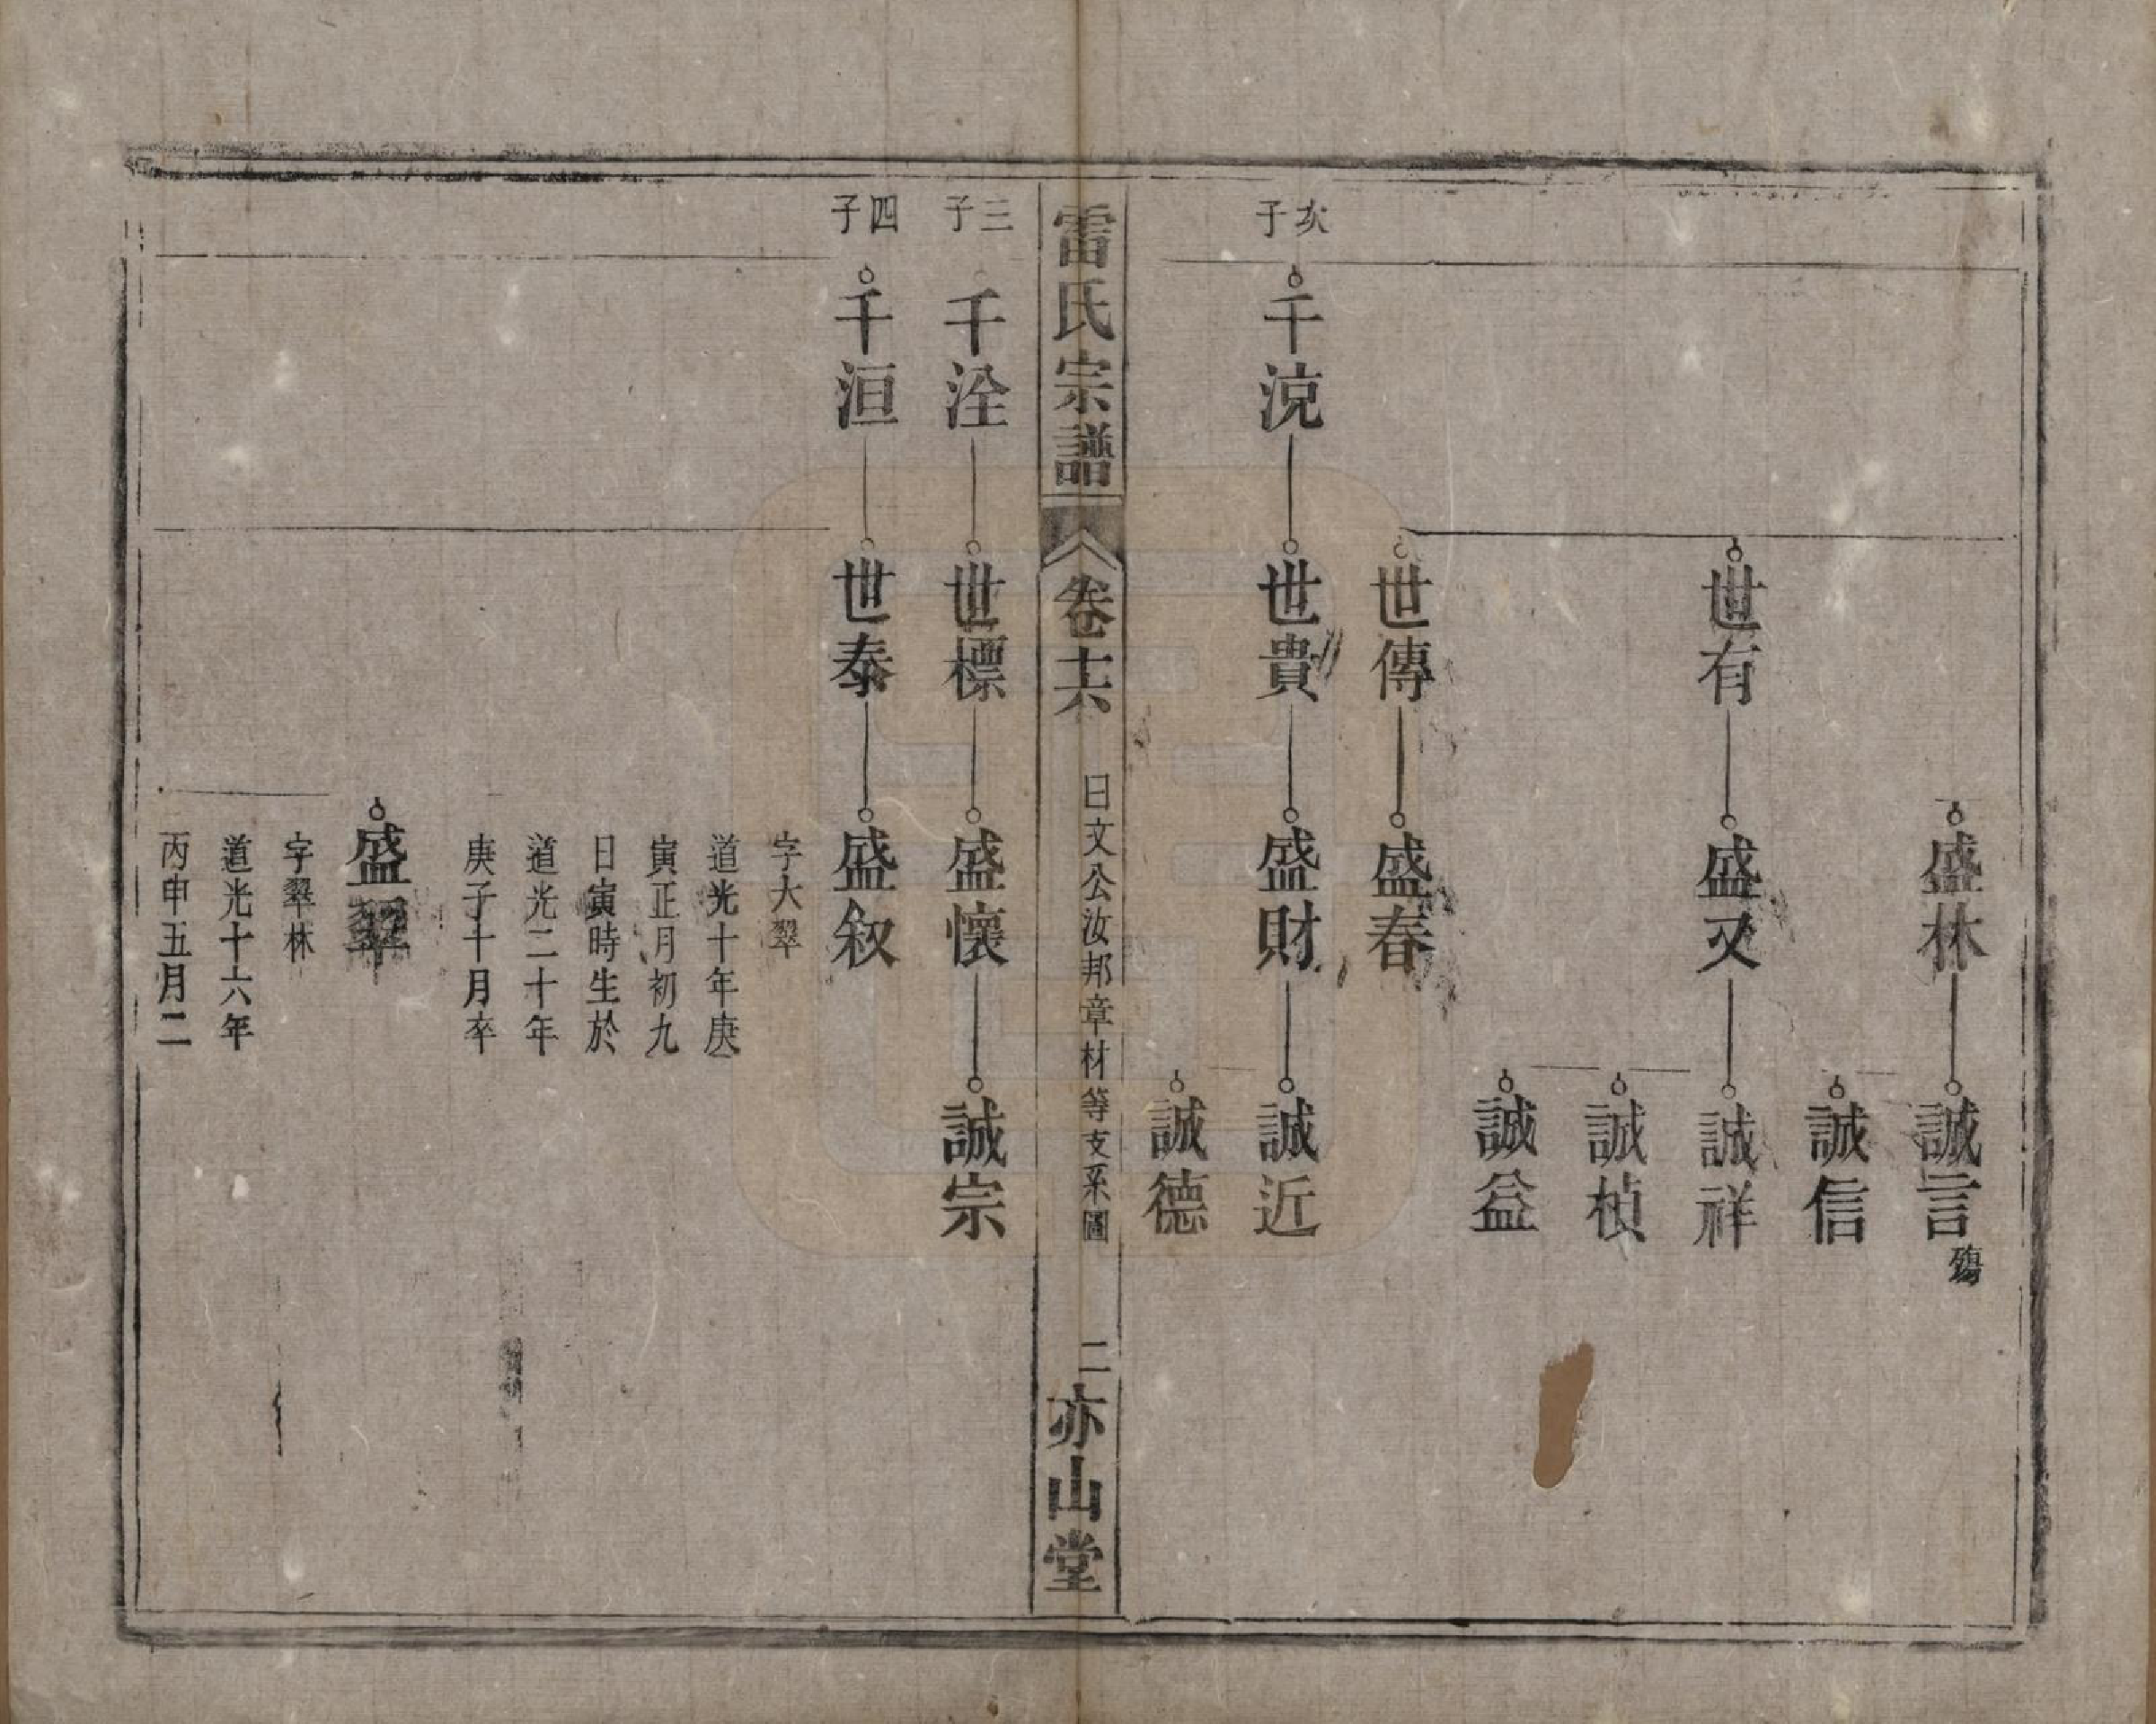 盛林
誠言
殤
誠信
世有
盛又
誠祥
誠楨
誠益
世傳
盛春
次子
千涼
世貴
盛財
誠近
誠德
雷氏宗譜
卷十六
日文公汝邦章材等支系圖
二
亦山堂
三子
千洤
世標
盛懷
誠宗
四子
千洹
世泰
盛叙
字大翠
道光十年庚
寅正月初九
日寅時生於
道光二十年
庚子十月卒
盛翠
字翠林
道光十六年
丙申五月二